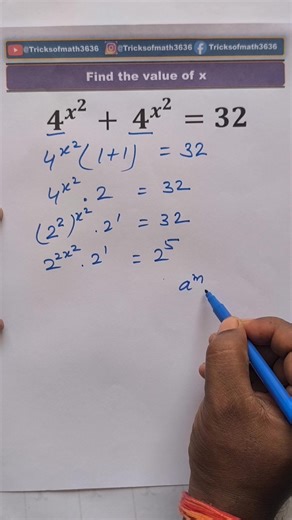 @Tricksofmath3636 @Tricksofmath3636 Tricksofmath3636
Find the value of x
4^{x^2} + 4^{x^2} = 32
4^{x^2} (1+1) = 32
4^{x^2} . 2 = 32
(2^2)^{x^2} . 2^1 = 32
2^{2x^2} . 2^1 = 2^5
a^m